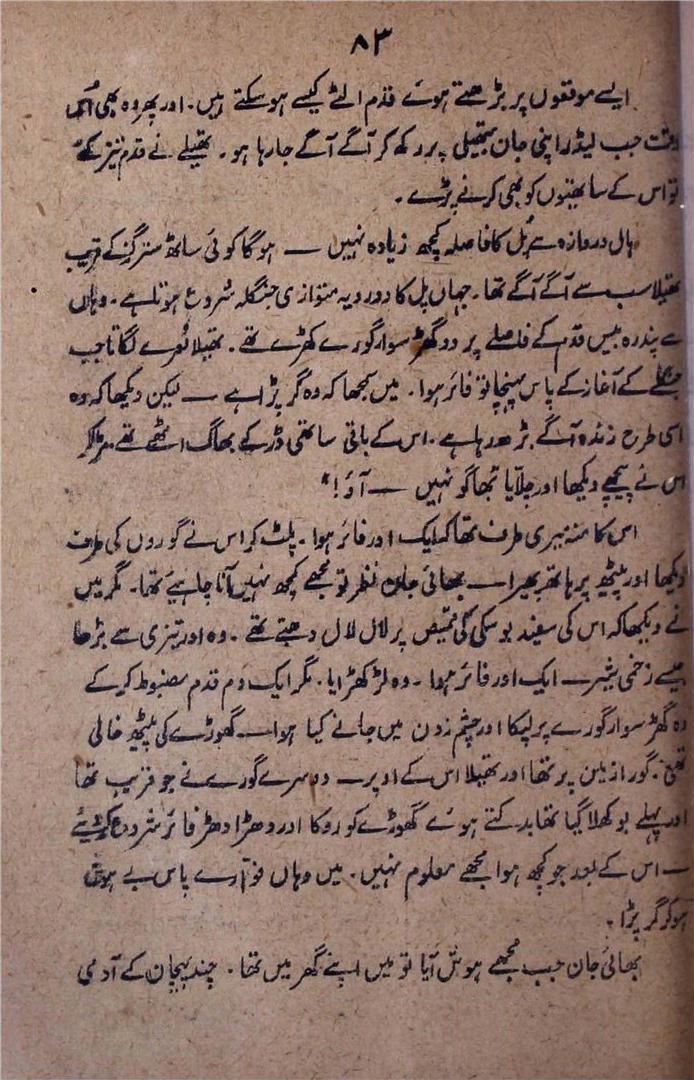 ۸۳
ایسے موقعوں پر بڑھتے ہوئے قدم الٹے کیسے ہو سکتے ہیں۔ اور پھر وہ بھی اُس
وقت جب لیڈر اپنی جان ہتھیلی پر رکھ کر آگے آگے جا رہا ہو۔ تھیلے نے قدم تیز کئے
تو اس کے ساتھیوں کو بھی کرنے پڑے۔
ہال دروازہ سے پُل کا فاصلہ کچھ زیادہ نہیں — ہوگا کوئی ساٹھ ستر گز کے قریب
تھیلا سب سے آگے آگے تھا۔ جہاں پل کا دورویہ متوازی جنگلہ شروع ہوتا ہے۔ وہاں
سے پندرہ بیس قدم کے فاصلے پر دو گھڑ سوار گورے کھڑے تھے۔ تھیلا نعرے لگاتا جب
جنگلے کے آغاز کے پاس پہنچا تو فائر ہوا۔ میں سمجھا کہ وہ گر پڑا ہے — لیکن دیکھا کہ وہ
اسی طرح زندہ آگے بڑھ رہا ہے۔ اس کے باقی ساتھی ڈر کے بھاگ اٹھے تھے۔ مڑ کر
اس نے پیچھے دیکھا اور چلّایا "بھاگو نہیں — آؤ!"
اس کا منہ میری طرف تھا کہ ایک اور فائر ہوا۔ پلٹ کر اس نے گوروں کی طرف
دیکھا اور پیٹھ پر ہاتھ پھیرا — بھائی جان نظر تو مجھے کچھ نہیں آنا چاہیئے تھا۔ مگر میں
نے دیکھا کہ اس کی سفید بوسکی کی قمیض پر لال لال دھبّے تھے۔ وہ اور تیزی سے بڑھا
جیسے زخمی شیر — ایک اور فائر ہوا۔ وہ لڑکھڑایا۔ مگر ایک دم قدم مضبوط کر کے
وہ گھڑ سوار گورے پر لپکا اور چشم زدن میں جانے کیا ہوا — گھوڑے کی پیٹھ خالی
تھی۔ گورا زمین پر تھا اور تھیلا اس کے اوپر — دوسرے گورے نے جو قریب تھا
اور پہلے بوکھلا گیا تھا بدکتے ہوئے گھوڑے کو روکا اور دھڑا دھڑ فائر شروع کر دیئے
— اس کے بعد جو کچھ ہوا مجھے معلوم نہیں۔ میں وہاں فوّارے پاس بے ہوش
ہو کر گر پڑا۔
بھائی جان جب مجھے ہوش آیا تو میں اپنے گھر میں تھا۔ چند پہچان کے آدمی